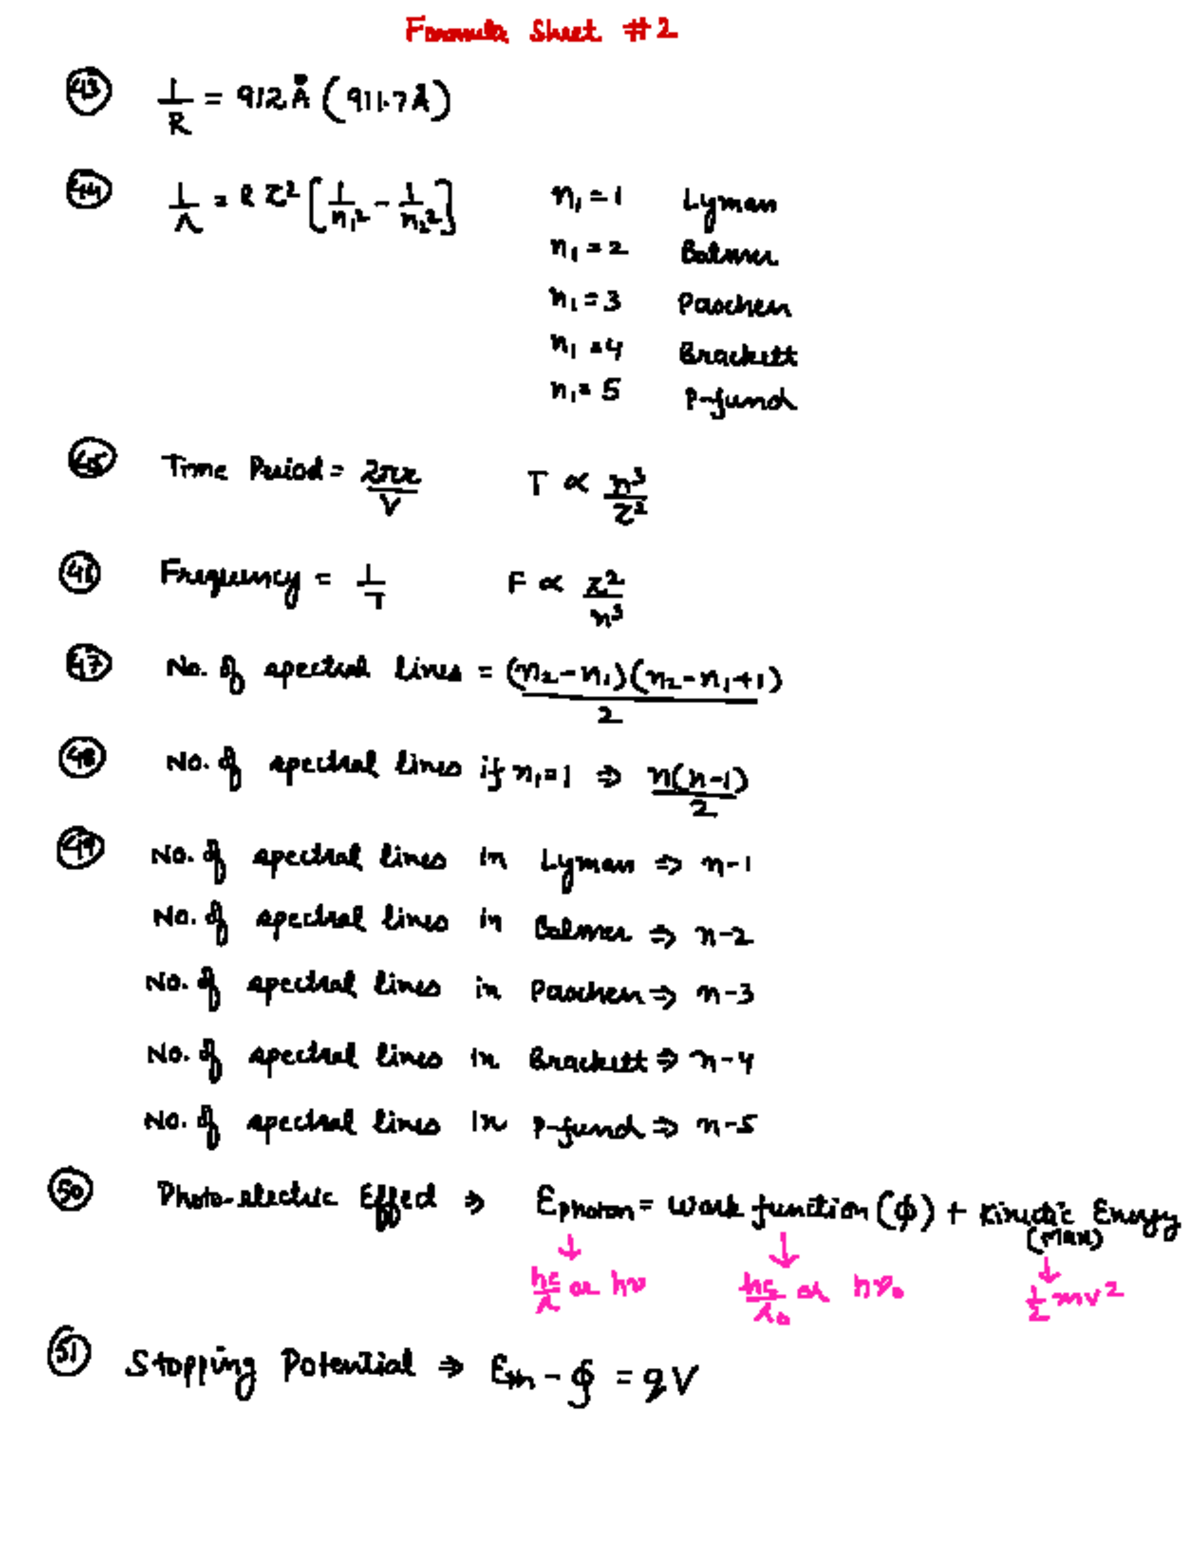 Formula Sheet #2
(43) 1/R = 912 Å (911.7 Å)
(44) 1/λ = R Z² [1/n₁² - 1/n₂²]
n₁ = 1 Lyman
n₁ = 2 Balmer
n₁ = 3 Paschen
n₁ = 4 Brackett
n₁ = 5 P-fund
(45) Time Period = 2πr/V T ∝ n³/Z²
(46) Frequency = 1/T F ∝ Z²/n³
(47) No. of spectral lines = (n₂-n₁)(n₂-n₁+1)/2
(48) No. of spectral lines if n₁=1 ⇒ n(n-1)/2
(49) No. of spectral lines in Lyman ⇒ n-1
No. of spectral lines in Balmer ⇒ n-2
No. of spectral lines in Paschen ⇒ n-3
No. of spectral lines in Brackett ⇒ n-4
No. of spectral lines in P-fund ⇒ n-5
(50) Photo-electric Effect ⇒ Ephoton = Work function (ϕ) + Kinetic Energy
(Max)
↓ ↓ ↓
hc/λ or hν hc/λ₀ or hν₀ 1/2 mv²
(51) Stopping Potential ⇒ Eph - ϕ = qV